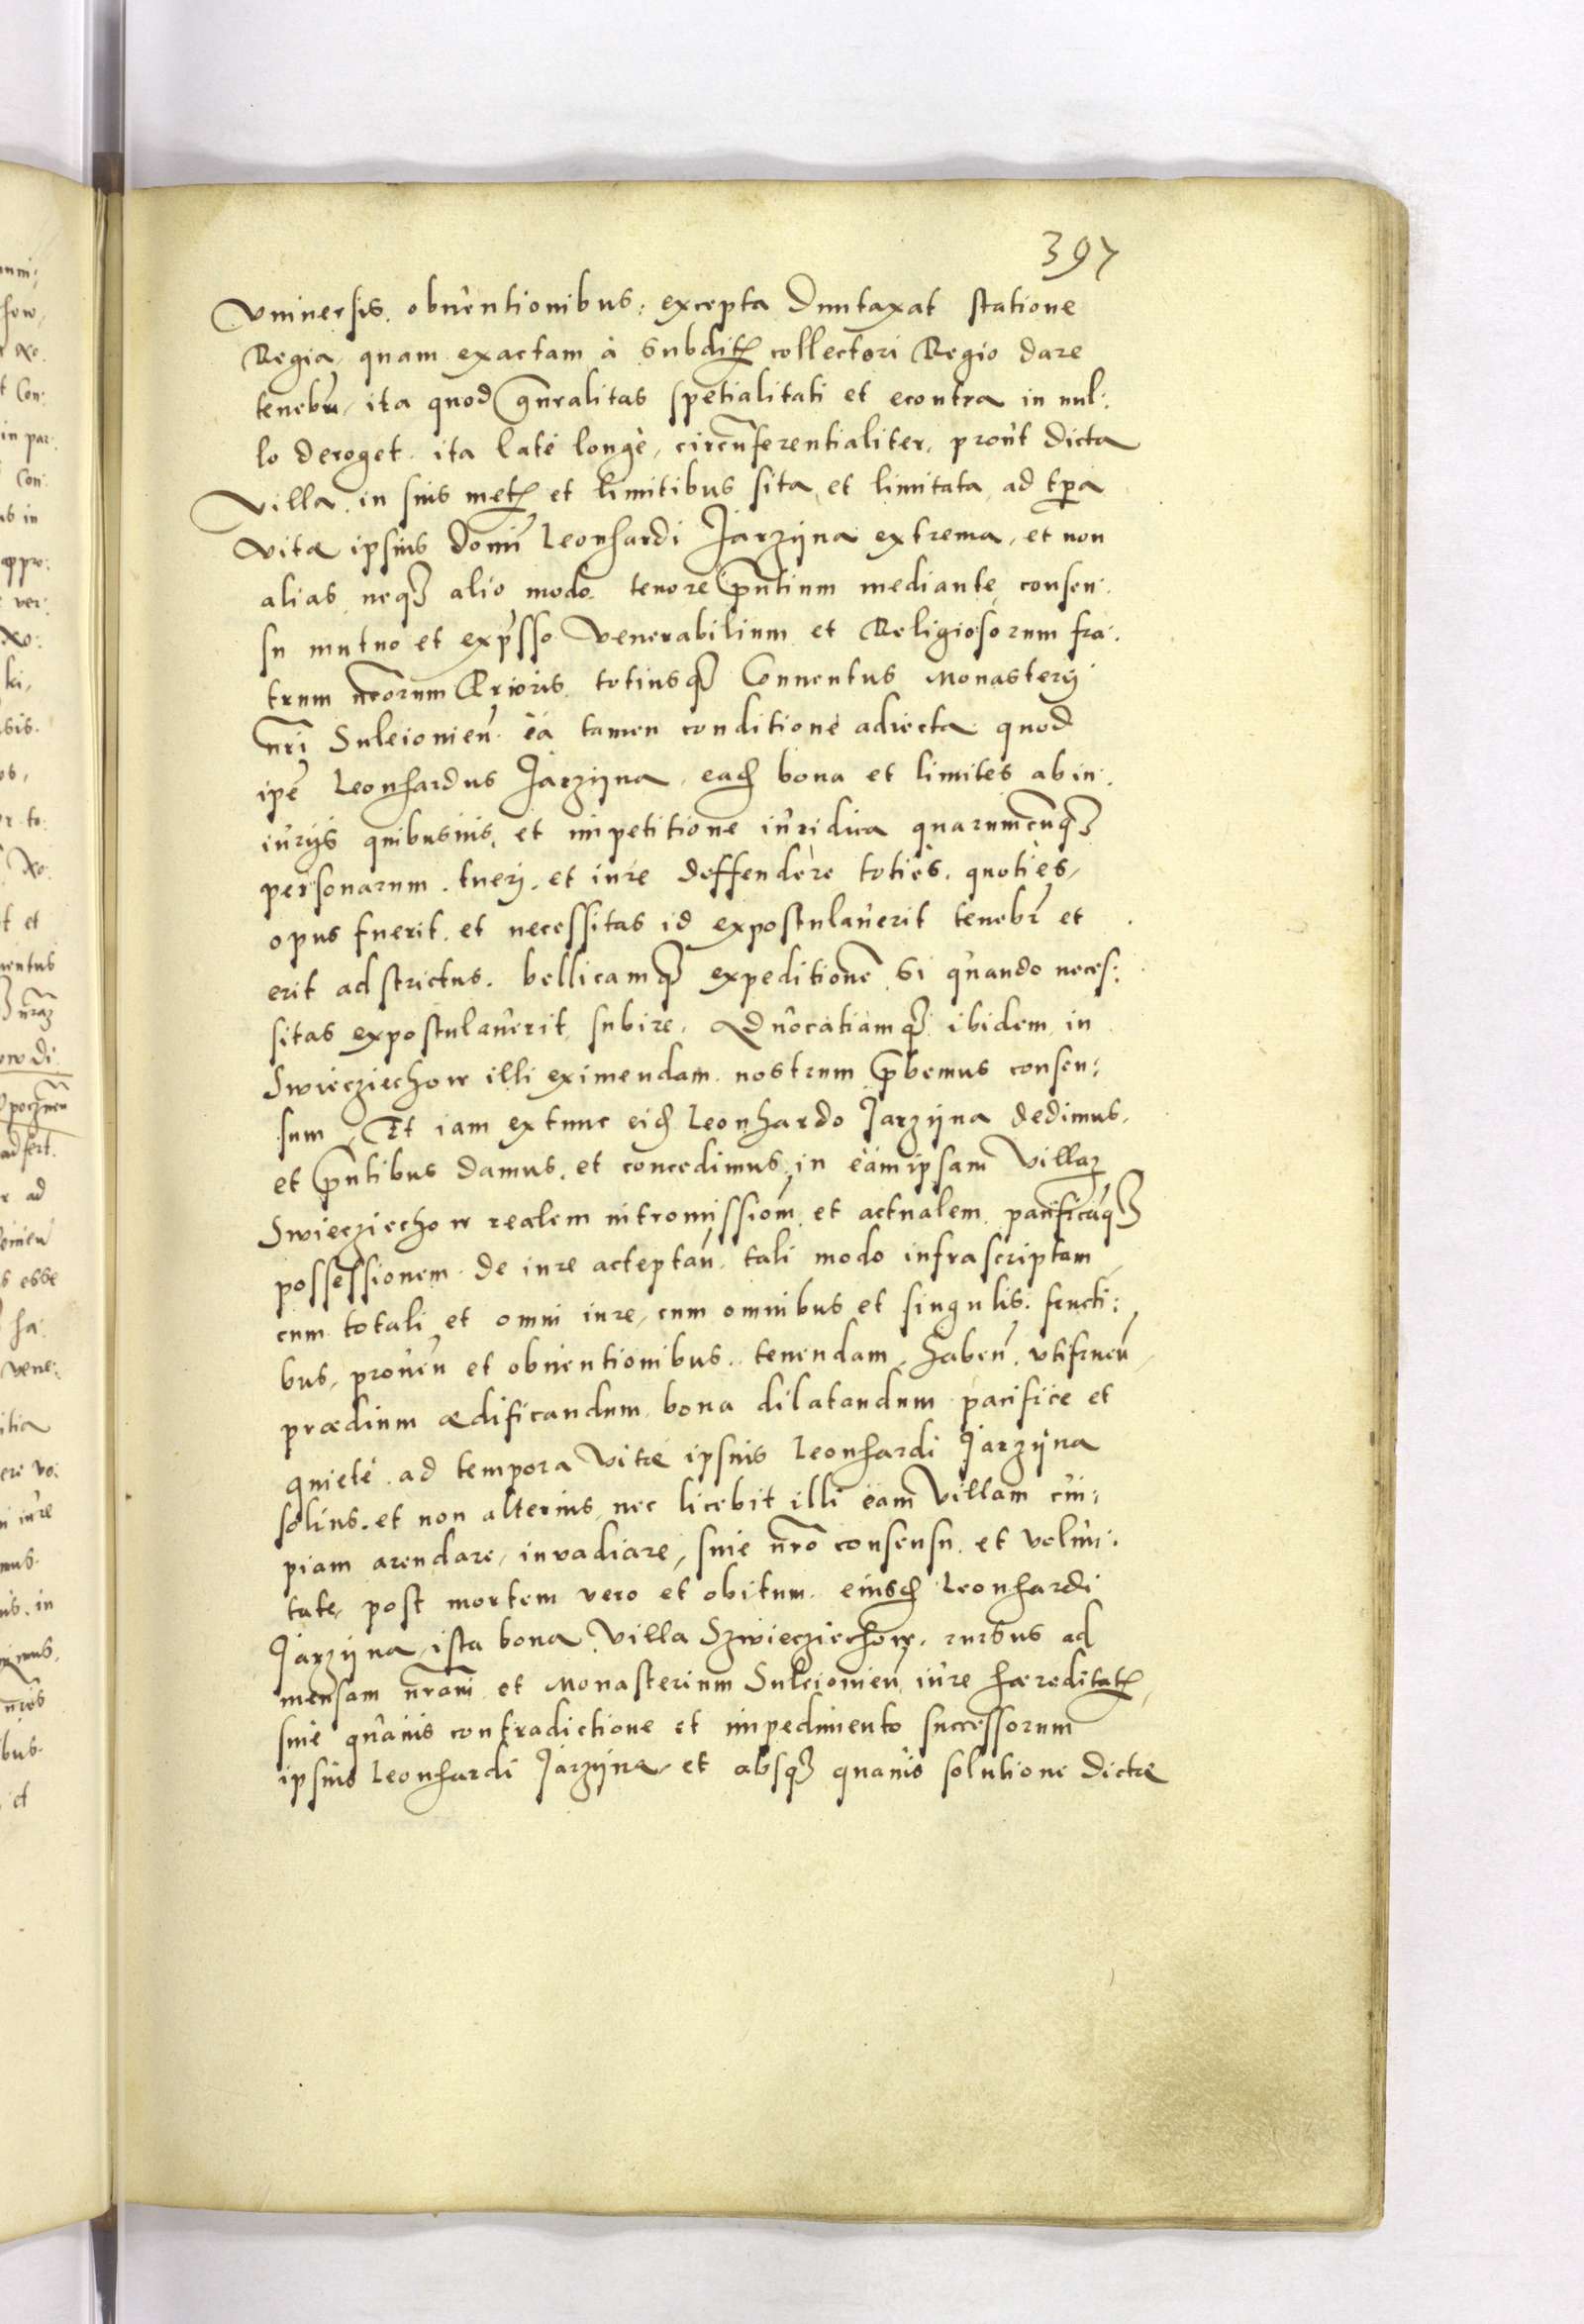 397
Vniuersis. obuentionibus: excepta Duntaxat statione
Regia, quam exactam à Subditꝭ collectori Regio dare
tenebr̃, ita quod gñralitas spetialitati et econtra in nul:
lo deroget. ita latè longè, circũferentialiter, proùt dicta
Villa, in suis metꝭ et limitibus sita, et limitata, ad tp̃a
vitæ ipsius domi͂ Leonhardi Jarzijna extrema, et non
alias, neqꝫ alio modo. tenore p̃ntium mediante, consen:
su mutuo et exp̃sso Venerabilium et Religiosorum fra:
trum nr̃orum Prioris totiusqꝫ Conuentus Monasterij
nr̃i Suleiouieñ. ea tamen conditione adiecta. quod
ip̃e Leonhardus Jarzijna, eađ bona et limites ab in:
iurijs quibusuis, et impetitione iuridica quarumcũqꝫ
personarum. tuerj. et iure deffendere toties. quoties,
opus fuerit. et necessitas id expostulauerit tenebr̃ et
erit adstrictus. bellicamqꝫ expeditionẽ. Si quando neces:
sitas expostulauerit, subire. Aduocatiamqꝫ ibidem in
Swiecziechow illi eximendam. nostrum p̃bemus consen:
sum, Et iam extunc eiđ Leonhardo Jarzijna dedimus,
et p̃ntibus damus. et concedimus, in eamipsam Villaꝫ
Swiecziechow realem intromissiom̃, et actualem, pacificãqꝫ
possessionem. de iure acceptañ. tali modo infrascriptam
cum totali et omni iure, cum omnibus et singulis. fructi:
bus, proueñ et obuentionibus. tenendam, habeñ, vtifrueñ,
prædium ædificandum, bona dilatandum pacificè et
quietè ad tempora Vitæ ipsius Leonhardi Jarzijna
solius. et non alterius, nec licebit illi eam Villam cui:
piam arendare, inuadiare, sine nr̃o consensu. et volun:
tate, post mortem vero et obitum. eiusđ Leonhardi
Jarzijna, ista bona Villa Szwiecziechow, rursus ad
mensam nr̃am et Monasterium Suleiouieñ iure hæreditatꝭ,
sine quauis contradictione et impedimento successorum
ipsius Leonhardi Jarzijna, et absqꝫ quauis solutione dictæ